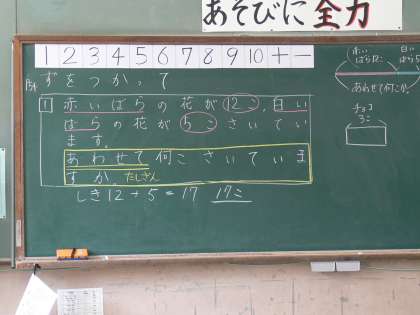 あそびに 全力
1 2 3 4 5 6 7 8 9 10 + −
ずをつかって
1 赤いばらの花が12こ、白い
ばらの花が5こさいてい
ます。
あわせて何こさいていま
すか。たしざん
しき12+5=17 17こ
赤い
ばら
白い
ばら
あわせて何こ
チョコ
3こ